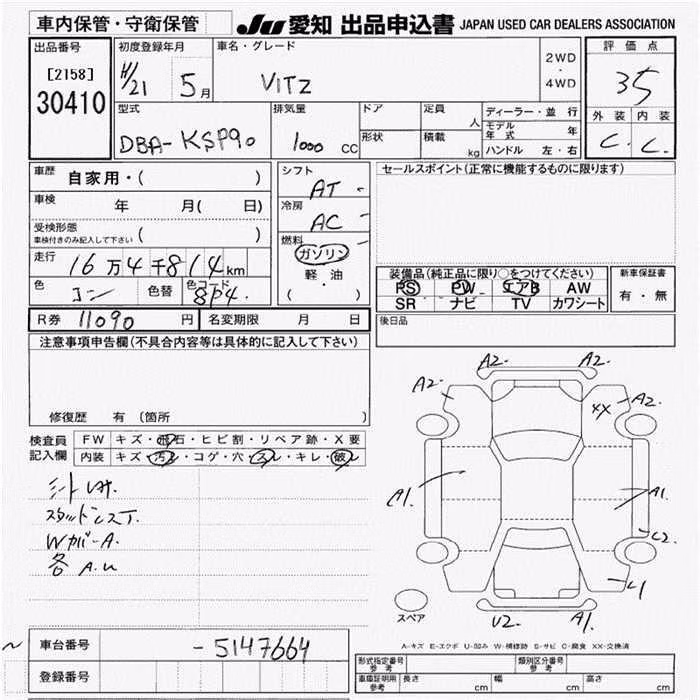 車内保管・守衛保管
JU 愛知 出品申込書 JAPAN USED CAR DEALERS ASSOCIATION
出品番号
[2158]
30410
初度登録年月
H/21 5月
車名・グレード
VITZ
2WD
・
4WD
評価点
3.5
外装 内装
C. C.
型式
DBA-KSP90
排気量
1000 CC
ドア
形状
定員 人
積載 kg
ディーラー・並行
モデル年式 年
ハンドル 左・右
車歴 自家用・( )
車検 年 月( 日)
受検形態
車検付きのみ記入して下さい ( )
走行 16万4千814km
色 コン 色替 色コード 8P4.
R券 11090 円 名変期限 月 日
シフト AT
冷房 AC
燃料 ガソリン
軽・油
( )
セールスポイント(正常に機能するものに限ります)
装備品(純正品に限り○をつけてください)
PS PW エアB AW
SR ナビ TV カワシート
新車保証書
有・無
後日品
注意事項申告欄(不具合内容等は具体的に記入して下さい)
修復歴 有 〔箇所 〕
検査員記入欄
FW キズ・飛石・ヒビ割・リペア跡・X要
内装 キズ・汚レ・コゲ・穴・スレ・キレ・破レ
シートレカ.
スタッドレスT.
Wカバ-A.
各 A.U
A2. A2.
A2. XX A2.
A1. A1.
C2.
C1
U2. A1.
スペア
A-キズ E-エクボ U-凹み W-補修跡 S-サビ C-腐食 XX-交換済
車台番号 -5147664
登録番号
形式指定番号 参考
類別区分番号 参考
車庫証明用 参考 長さ cm 幅 cm 高さ cm